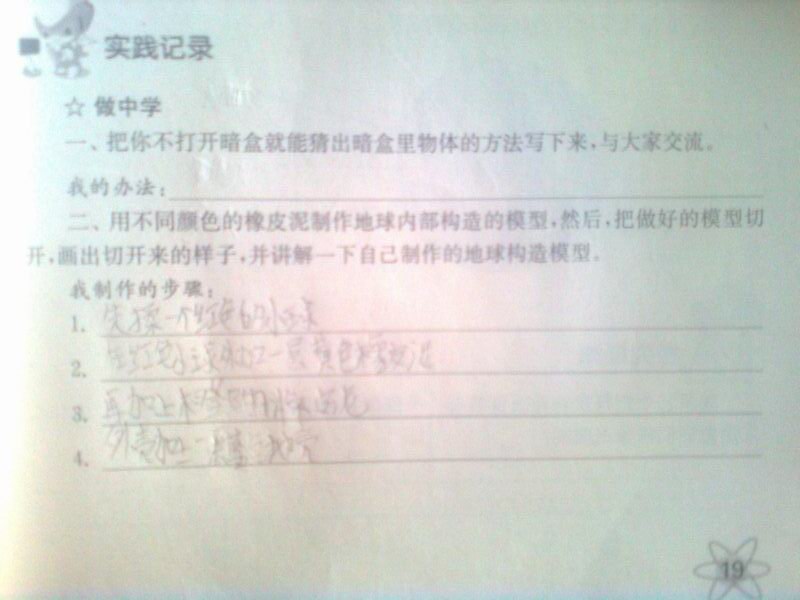 实践记录
☆ 做中学
一、把你不打开暗盒就能猜出暗盒里物体的方法写下来,与大家交流。
我的办法:
二、用不同颜色的橡皮泥制作地球内部构造的模型,然后,把做好的模型切
开,画出切开来的样子,并讲解一下自己制作的地球构造模型。
我制作的步骤:
1. 先揉一个红色的小球
2. 红色小球外加一层黄色橡皮泥
3. 再加上
4. 外壳
19